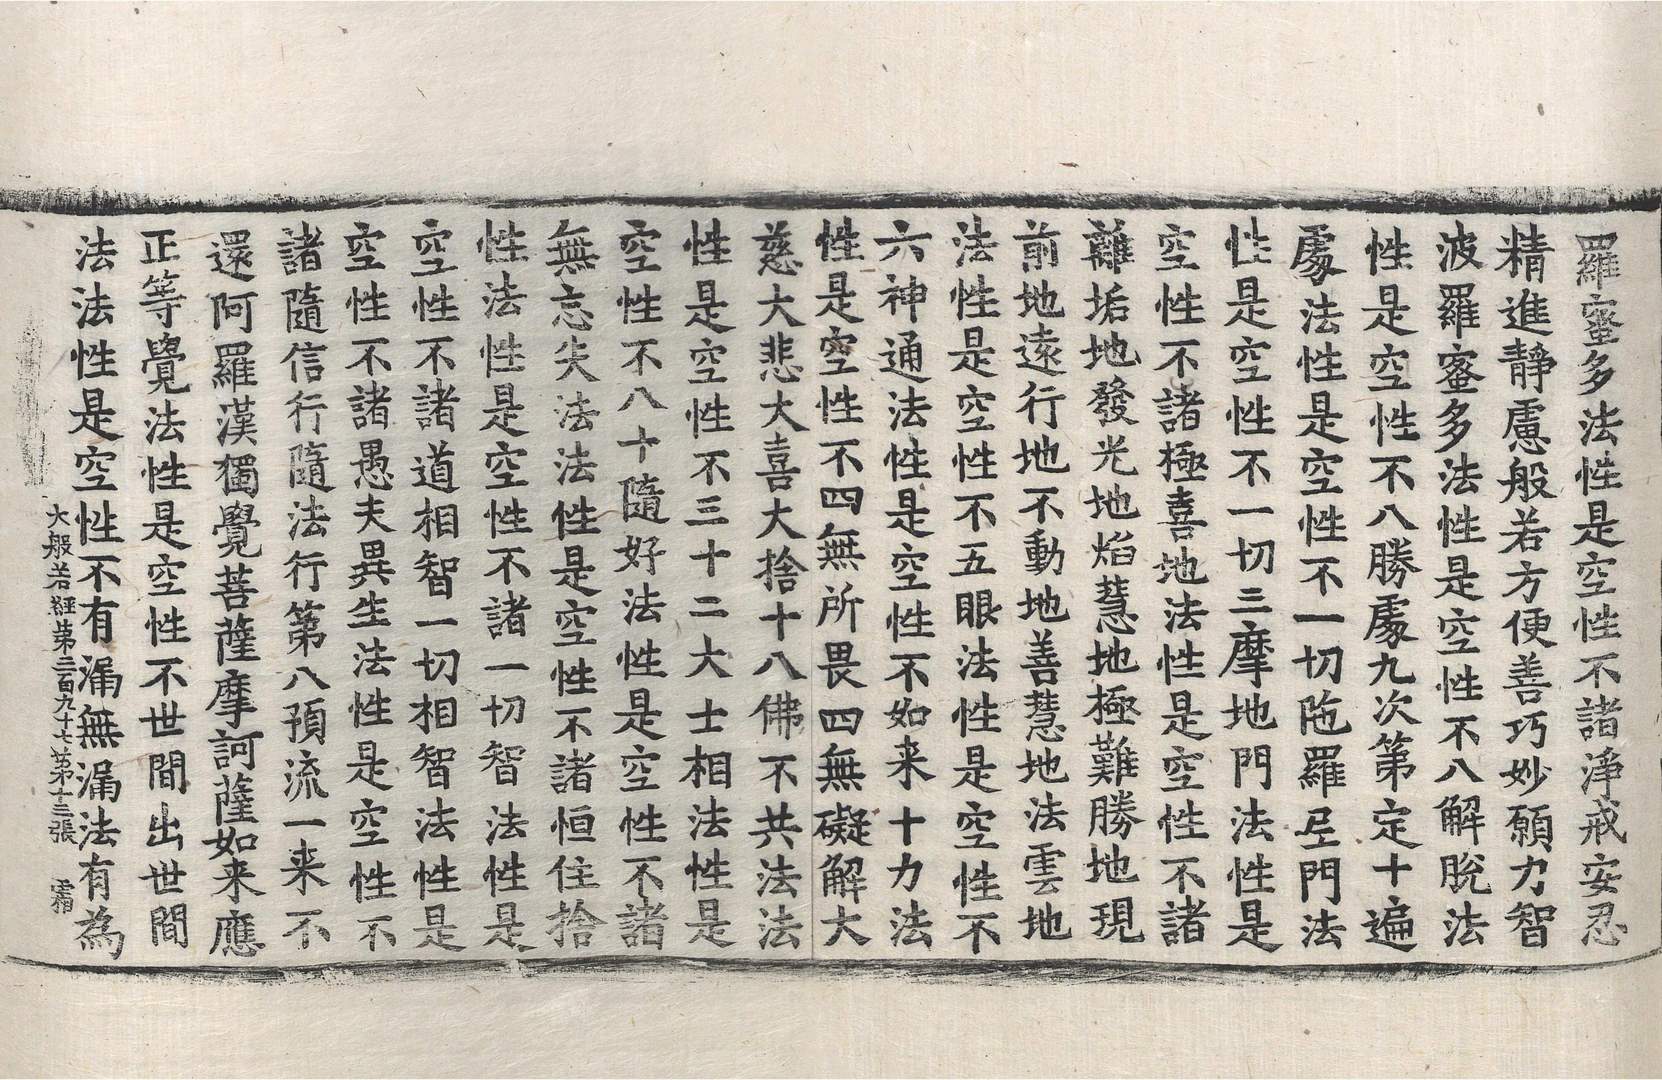 羅蜜多法性是空性不諸淨戒安忍
精進靜慮般若方便善巧妙願力智
波羅蜜多法性是空性不八解脫法
性是空性不八勝處九次第定十遍
處法性是空性不一切陁羅尼門法
性是空性不一切三摩地門法性是
空性不諸極喜地法性是空性不諸
離垢地發光地焰慧地極難勝地現
前地遠行地不動地善慧地法雲地
法性是空性不五眼法性是空性不
六神通法性是空性不如来十力法
性是空性不四無所畏四無礙解大
慈大悲大喜大捨十八佛不共法法
性是空性不三十二大士相法性是
空性不八十隨好法性是空性不諸
無忘失法法性是空性不諸恒住捨
性法性是空性不諸一切智法性是
空性不諸道相智一切相智法性是
空性不諸愚夫異生法性是空性不
諸隨信行隨法行第八預流一来不
還阿羅漢獨覺菩薩摩訶薩如来應
正等覺法性是空性不世間出世間
法法性是空性不有漏無漏法有為
大般若經第二百九十七第十三張 霜